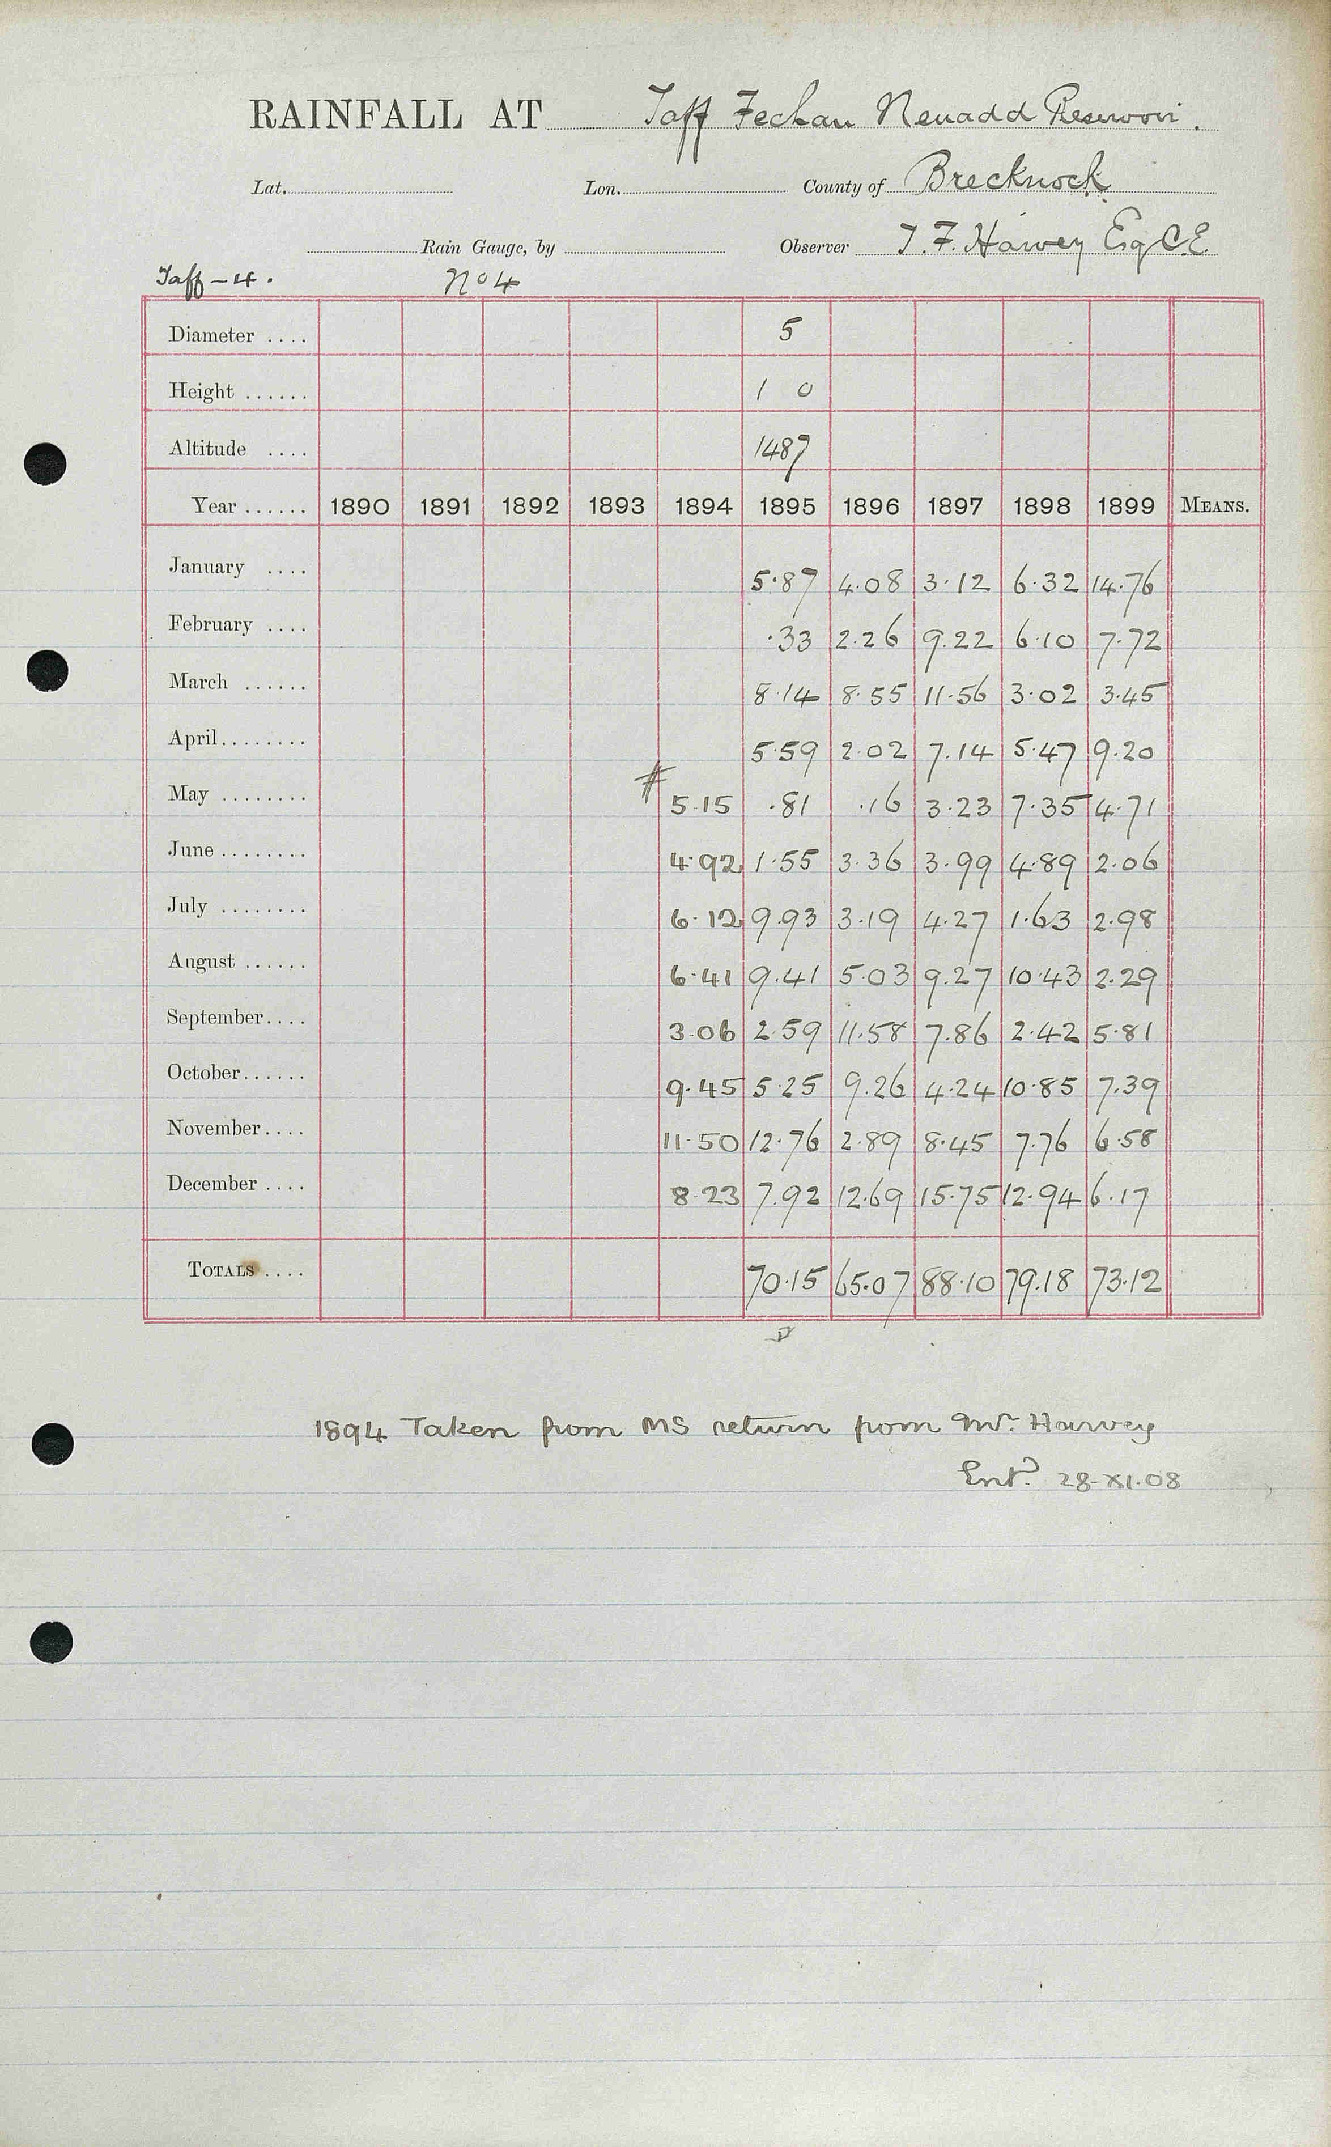 RAINFALL AT Taff Fechan Neuadd Reservoir.
Lat. Lon. County of Brecknock
Rain Gauge, by Observer T. F. Harvey Esq C.E
Taff-4. No 4
Diameter .... 5
Height ...... 1 0
Altitude .... 1487
Year ...... 1890 1891 1892 1893 1894 1895 1896 1897 1898 1899 MEANS.
January .... 5.87 4.08 3.12 6.32 14.76
February .... .33 2.26 9.22 6.10 7.72
March ...... 8.14 8.55 11.56 3.02 3.45
April........ 5.59 2.02 7.14 5.47 9.20
May ........ # 5.15 .81 .16 3.23 7.35 4.71
June ........ 4.92 1.55 3.36 3.99 4.89 2.06
July ........ 6.12 9.93 3.19 4.27 1.63 2.98
August ...... 6.41 9.41 5.03 9.27 10.43 2.29
September.... 3.06 2.59 11.58 7.86 2.42 5.81
October...... 9.45 5.25 9.26 4.24 10.85 7.39
November.... 11.50 12.76 2.89 8.45 7.76 6.58
December .... 8.23 7.92 12.69 15.75 12.94 6.17
TOTALS .... 70.15 65.07 88.10 79.18 73.12
1894 Taken from MS return from Mr. Harvey
Entd. 28-XI-08